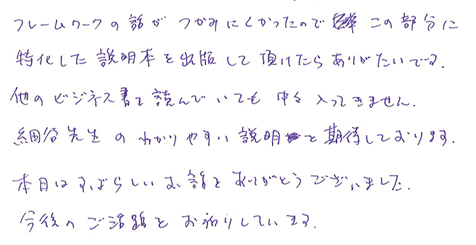 フレームワークの話が つかみにくかったので この部分に
特化した説明本を出版して頂けたらありがたいです.
他のビジネス書を読んでいても 中々入ってきません.
細谷先生のわかりやすい説明を期待しております.
本日はすばらしいお話をありがとうございました.
今後のご活躍をお祈りしています.